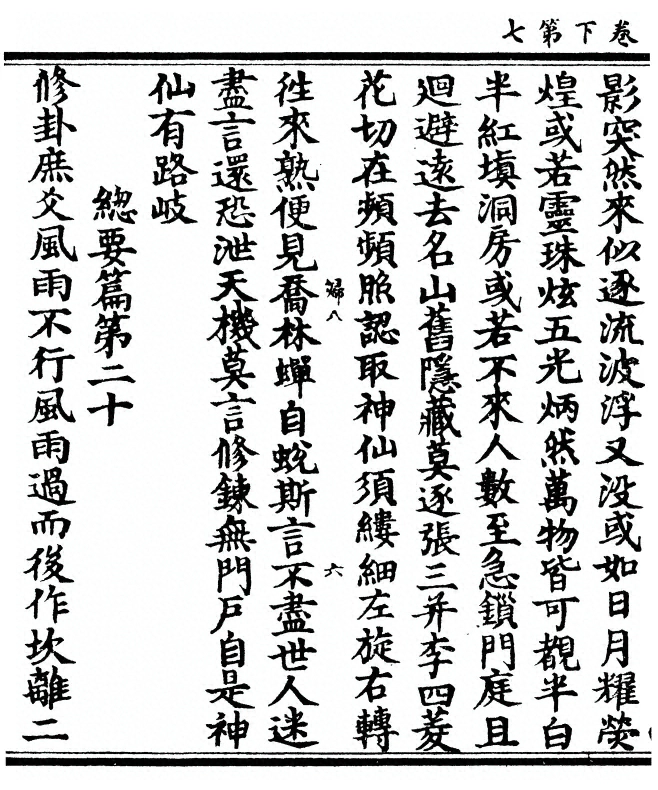 卷下第七
影突然來似逐流波浮又没或如日月耀熒
煌或若靈珠炫五光炳然萬物皆可覩半白
半紅塡洞房或若不來人數至急鎖門庭且
迴避遠去名山舊隱藏莫逐張三并李四菱
花切在頻頻照認取神仙須縷細左旋右轉
婦八 六
徃來熟便見喬林蟬自蛻斯言不盡世人迷
盡言還恐泄天機莫言修鍊無門戸自是神
仙有路岐
緫要篇第二十
修卦庶爻風雨不行風雨過而後作坎離二